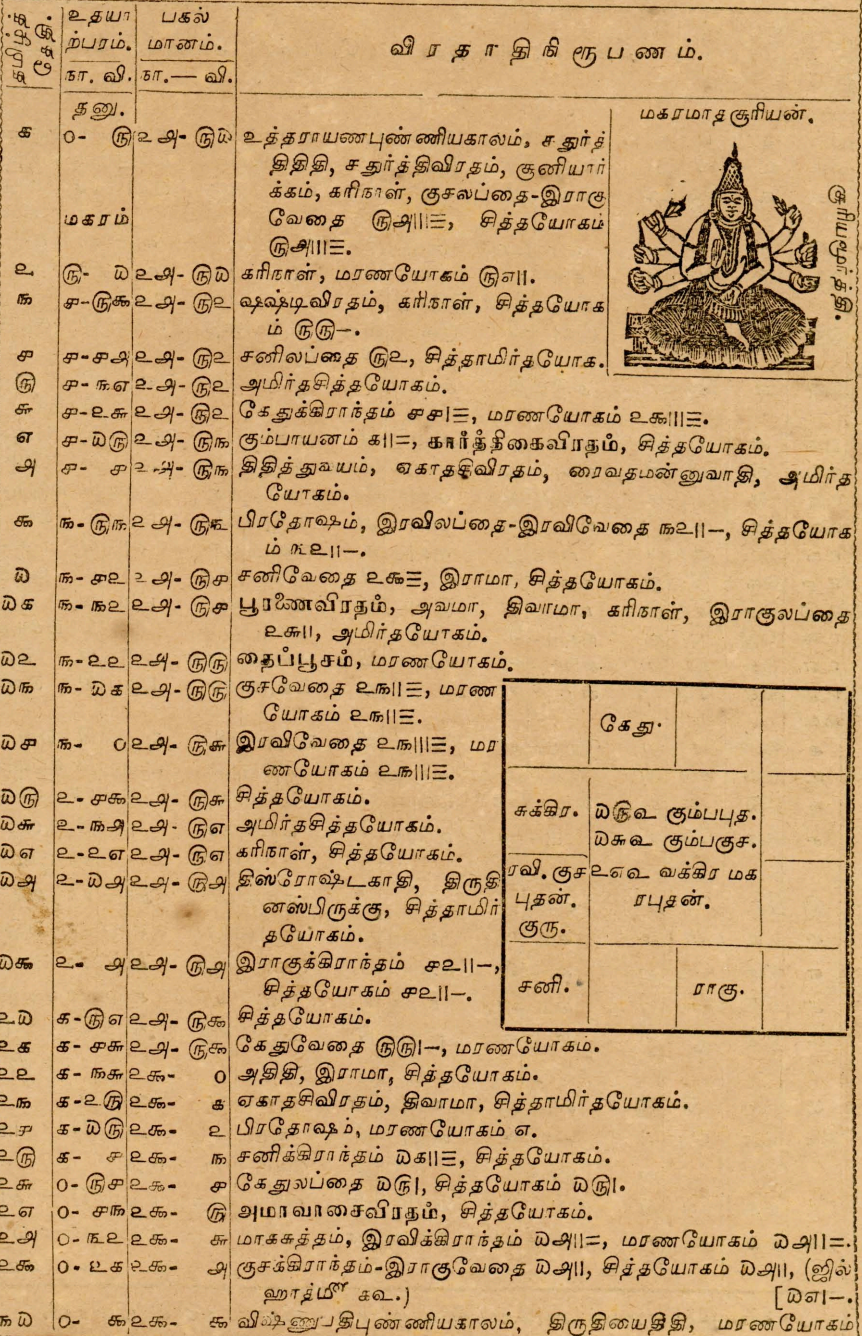 தமிழ்த் தேதி. உதயா பகல்
ற்பரம். மானம். விரதாதிநிரூபணம்.
நா. வி. நா.— வி.
தனு. மகரமாத சூரியன்.
க ௦- ௫ ௨௮- ௫௰ உத்தராயணபுண்ணியகாலம், சதுர்த்
திதிதி, சதுர்த்திவிரதம், சூனியார்
க்கம், கரிநாள், குசலப்தை-இராகு
மகரம் வேதை ௫௮|||☰, சித்தயோகம்
௫௮|||☰.
சூரியமூர்த்தி.
௨ ௫- ௰ ௨௮- ௫௰ கரிநாள், மரணயோகம் ௫௭||.
௩ ௪-௫௯ ௨௮- ௫௨ ஷஷ்டிவிரதம், கரிநாள், சித்தயோக
ம் ௫௫–.
௪ ௪-௪௮ ௨௮- ௫௨ சனிலப்தை ௫௨, சித்தாமிர்தயோக.
௫ ௪-௩௭ ௨௮- ௫௨ அமிர்தசித்தயோகம்.
௬ ௪-௨௬ ௨௮- ௫௨ கேதுக்கிராந்தம் ௪௪|☰, மரணயோகம் ௨௯|||☰.
௭ ௪-௰௫ ௨௮- ௫௩ கும்பாயனம் ௧||=, கார்த்திகைவிரதம், சித்தயோகம்.
௮ ௪- ௪ ௨௮- ௫௩ திதித்துவயம், ஏகாதசிவிரதம், ரைவதமன்னுவாதி, அமிர்த
யோகம்.
௯ ௩-௫௩ ௨௮- ௫௩ பிரதோஷம், இரவிலப்தை-இரவிவேதை ௩௨||–, சித்தயோக
ம் ௩௨||–.
௰ ௩-௪௨ ௨௮- ௫௪ சனிவேதை ௨௯☰, இராமா, சித்தயோகம்.
௰௧ ௩-௩௨ ௨௮- ௫௪ பூரணைவிரதம், அவமா, திவாமா, கரிநாள், இராகுலப்தை
௨௬||, அமிர்தயோகம்.
௰௨ ௩-௨௨ ௨௮- ௫௫ தைப்பூசம், மரணயோகம்.
௰௩ ௩-௰௧ ௨௮- ௫௫ குசவேதை ௨௩||☰, மரண
யோகம் ௨௩||☰.
௰௪ ௩- ௦ ௨௮- ௫௬ இரவிவேதை ௨௩|||☰, மர
ணயோகம் ௨௩|||☰.
௰௫ ௨-௪௯ ௨௮- ௫௬ சித்தயோகம்.
௰௬ ௨-௩௮ ௨௮- ௫௭ அமிர்தசித்தயோகம்.
௰௭ ௨-௨௭ ௨௮- ௫௭ கரிநாள், சித்தயோகம்.
௰௮ ௨-௰௮ ௨௮- ௫௮ திஸ்ரோஷ்டகாதி, திருதி
னஸ்பிருக்கு, சித்தாமிர்
தயோகம்.
௰௯ ௨- ௮ ௨௮- ௫௮ இராகுக்கிராந்தம் ௪௨||–,
சித்தயோகம் ௪௨||–.
கேது.
சுக்கிர. ௰௫௳ கும்பபுத.
௰௬௳ கும்பகுச.
ரவி. குச ௨௭௳ வக்கிர மக
புதன். ரபுதன்.
குரு.
சனி. ராகு.
௨௰ ௧-௫௭ ௨௮- ௫௯ சித்தயோகம்.
௨௧ ௧-௪௬ ௨௮- ௫௯ கேதுவேதை ௫௫|–, மரணயோகம்.
௨௨ ௧-௩௬ ௨௯- ௦ அதிதி, இராமா, சித்தயோகம்.
௨௩ ௧-௨௫ ௨௯- ௧ ஏகாதசிவிரதம், திவாமா, சித்தாமிர்தயோகம்.
௨௪ ௧-௰௫ ௨௯- ௨ பிரதோஷம், மரணயோகம் ௭.
௨௫ ௧- ௪ ௨௯- ௩ சனிக்கிராந்தம் ௰௧||☰, சித்தயோகம்.
௨௬ ௦-௫௪ ௨௯- ௪ கேதுலப்தை ௰௫|, சித்தயோகம் ௰௫|.
௨௭ ௦- ௪௩ ௨௯- ௫ அமாவாசைவிரதம், சித்தயோகம்.
௨௮ ௦-௩௨ ௨௯- ௬ மாகசுத்தம், இரவிக்கிராந்தம் ௰௮||=, மரணயோகம் ௰௮||=.
௨௯ ௦-௨௧ ௨௯- ௮ குசக்கிராந்தம்-இராகுவேதை ௰௮||, சித்தயோகம் ௰௮||, (ஜில்
ஹாத்மீ ௧௳.) [௰௭|–.
௩௰ ௦- ௯ ௨௯- ௯ விஷ்ணுபதிபுண்ணியகாலம், திருதியைதிதி, மரணயோகம்